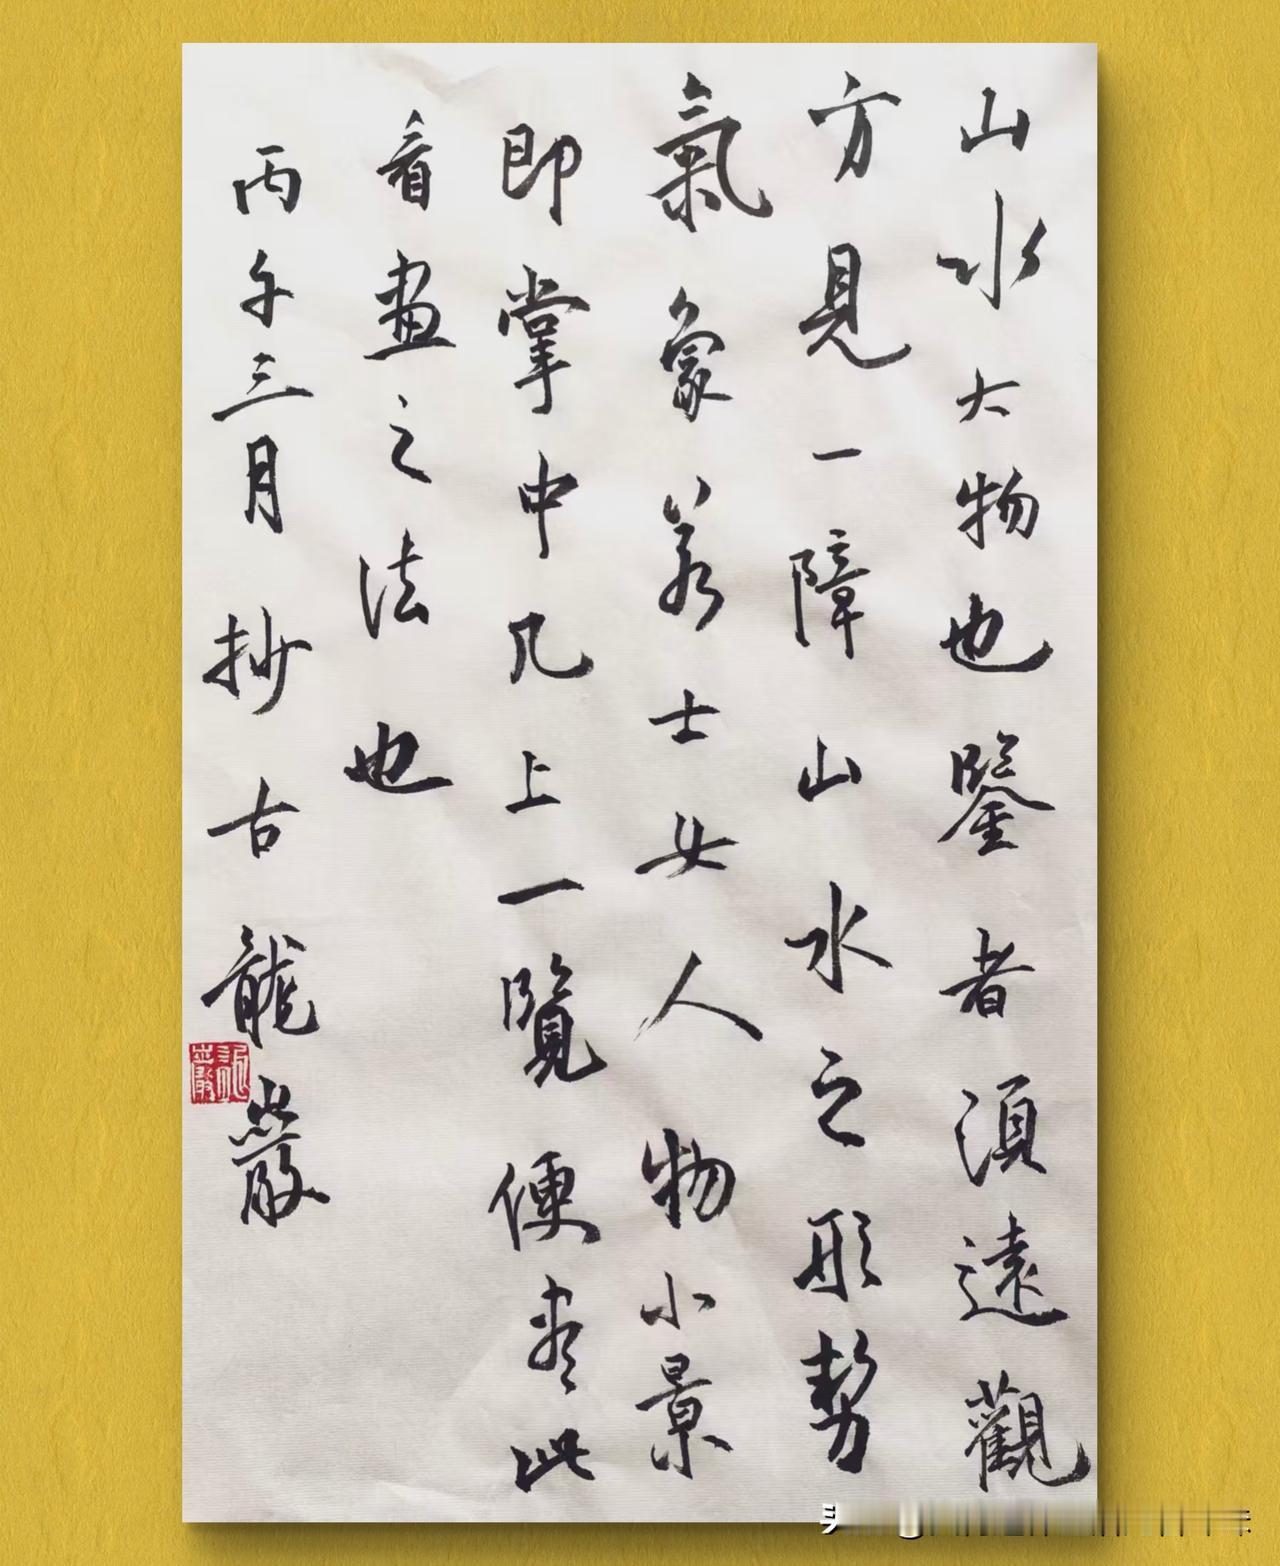 山水大物也鑒者須遠觀
方見一障山水之形勢
氣象若士女人物小景
即掌中几上一覽便盡此
看畫之法也
丙午三月抄古龍巖